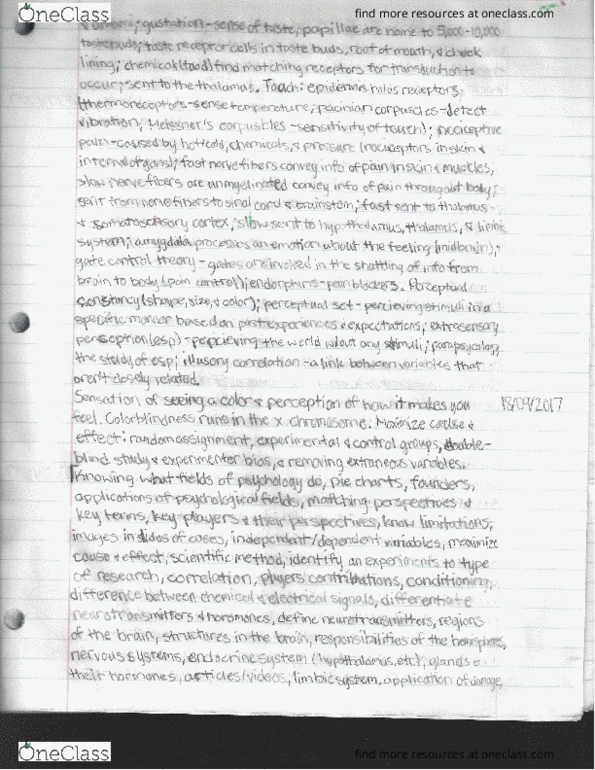 OneClass
find more resources at oneclass.com
; gustation - sense of taste; papillae are home to 5,000-10,000
tastebuds; taste receptor cells in taste buds, roof of mouth, & cheek
lining; chemicals (food) find matching receptors for transduction to
occur; sent to the thalamus. Touch: epidermis holds receptors
(thermoreceptors - sense temperature; pacinian corpuscles - detect
vibration; Meissner's corpuscles - sensitivity of touch); nociceptive
pain - caused by hot/cold, chemicals, & pressure (nociceptors in skin &
internal organs); fast nerve fibers convey info of pain in skin & muscles,
slow nerve fibers are unmyelinated convey info of pain throughout body;
sent from nerve fibers to spinal cord & brainstem; fast sent to thalamus
& somatosensory cortex; slow sent to hypothalamus, thalamus, & limbic
system; amygdala processes an emotion about the feeling (midbrain);
gate control theory - gates are involved in the shuttling of info from
brain to body (pain control); endorphins - pain blockers. Perceptual
constancy (shape, size, & color); perceptual set - percieving stimuli in a
specific manner based on past experiences & expectations; extrasensory
perception (esp) - percieving the world w/out any stimuli; parapsycology
the study of esp; illusory correlation - a link between variables that
aren't closely related.
Sensation of seeing a color & perception of how it makes you 18/09/2017
feel. Colorblindness runs in the x chromosome. Maximize cause &
effect: random assignment, experimental & control groups, double-
blind study & experimenter bias, & removing extraneous variables.
Knowing what fields of psychology do, pie charts, founders,
applications of psychological fields, matching perspectives &
key terms, key players & their perspectives, know limitations,
images in slides of cases, independent/dependent variables, maximize
cause & effect, scientific method, identify an experiments to type
of research, correlation, players contributions, conditioning,
difference between chemical & electrical signals, differentiate
neurotransmitters & hormones, define neurotransmitters, regions
of the brain, structures in the brain, responsibilities of the hemispheres,
nervous systems, endocrine system (hypothalamus, etc), glands &
their hormones, articles/videos, limbic system, application of damage,
OneClass
find more resources at oneclass.com